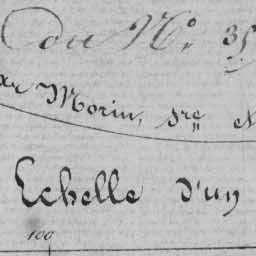 du N°. 35
Morin, sre et
Echelle d'un
100